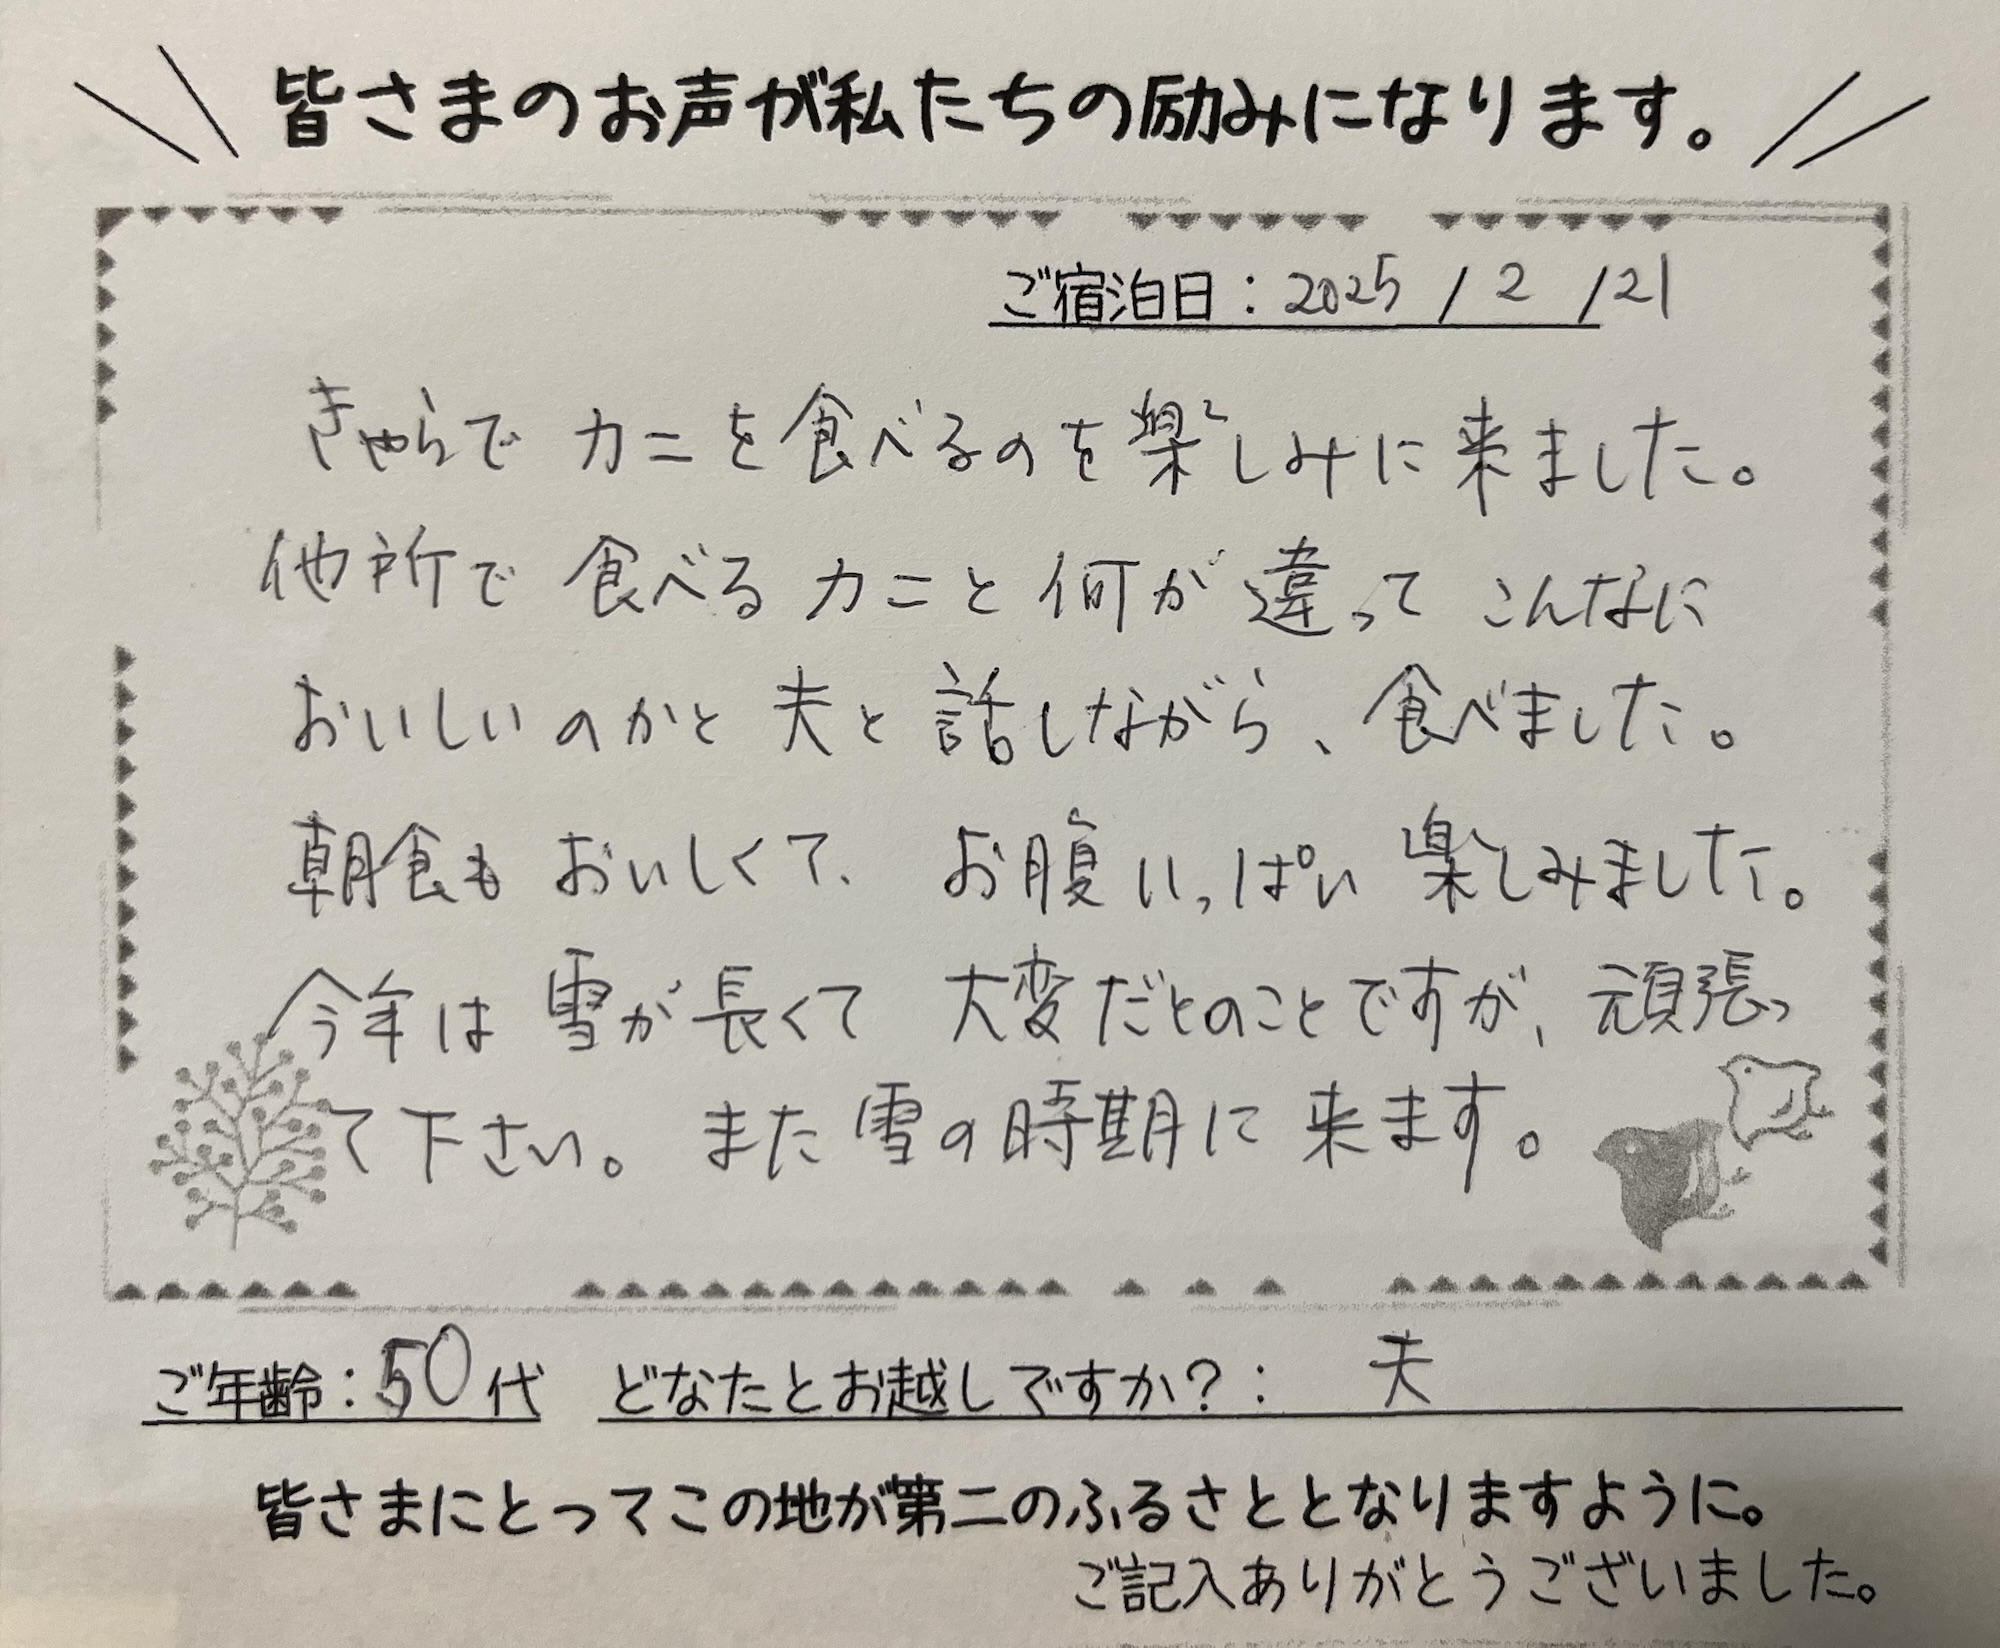 皆さまのお声が私たちの励みになります。
ご宿泊日：2025 / 2 / 21
きゃらで カニを食べるのを楽しみに来ました。
他所で 食べる カニと 何が 違って こんなに
おいしいのかと 夫と 話しながら、食べました。
朝食も おいしくて、お腹いっぱい 楽しみました。
今年は 雪が 長くて 大変だとのことですが、頑張っ
て下さい。また雪の時期に来ます。
ご年齢：50代 どなたとお越しですか？： 夫
皆さまにとってこの地が第二のふるさととなりますように。
ご記入ありがとうございました。